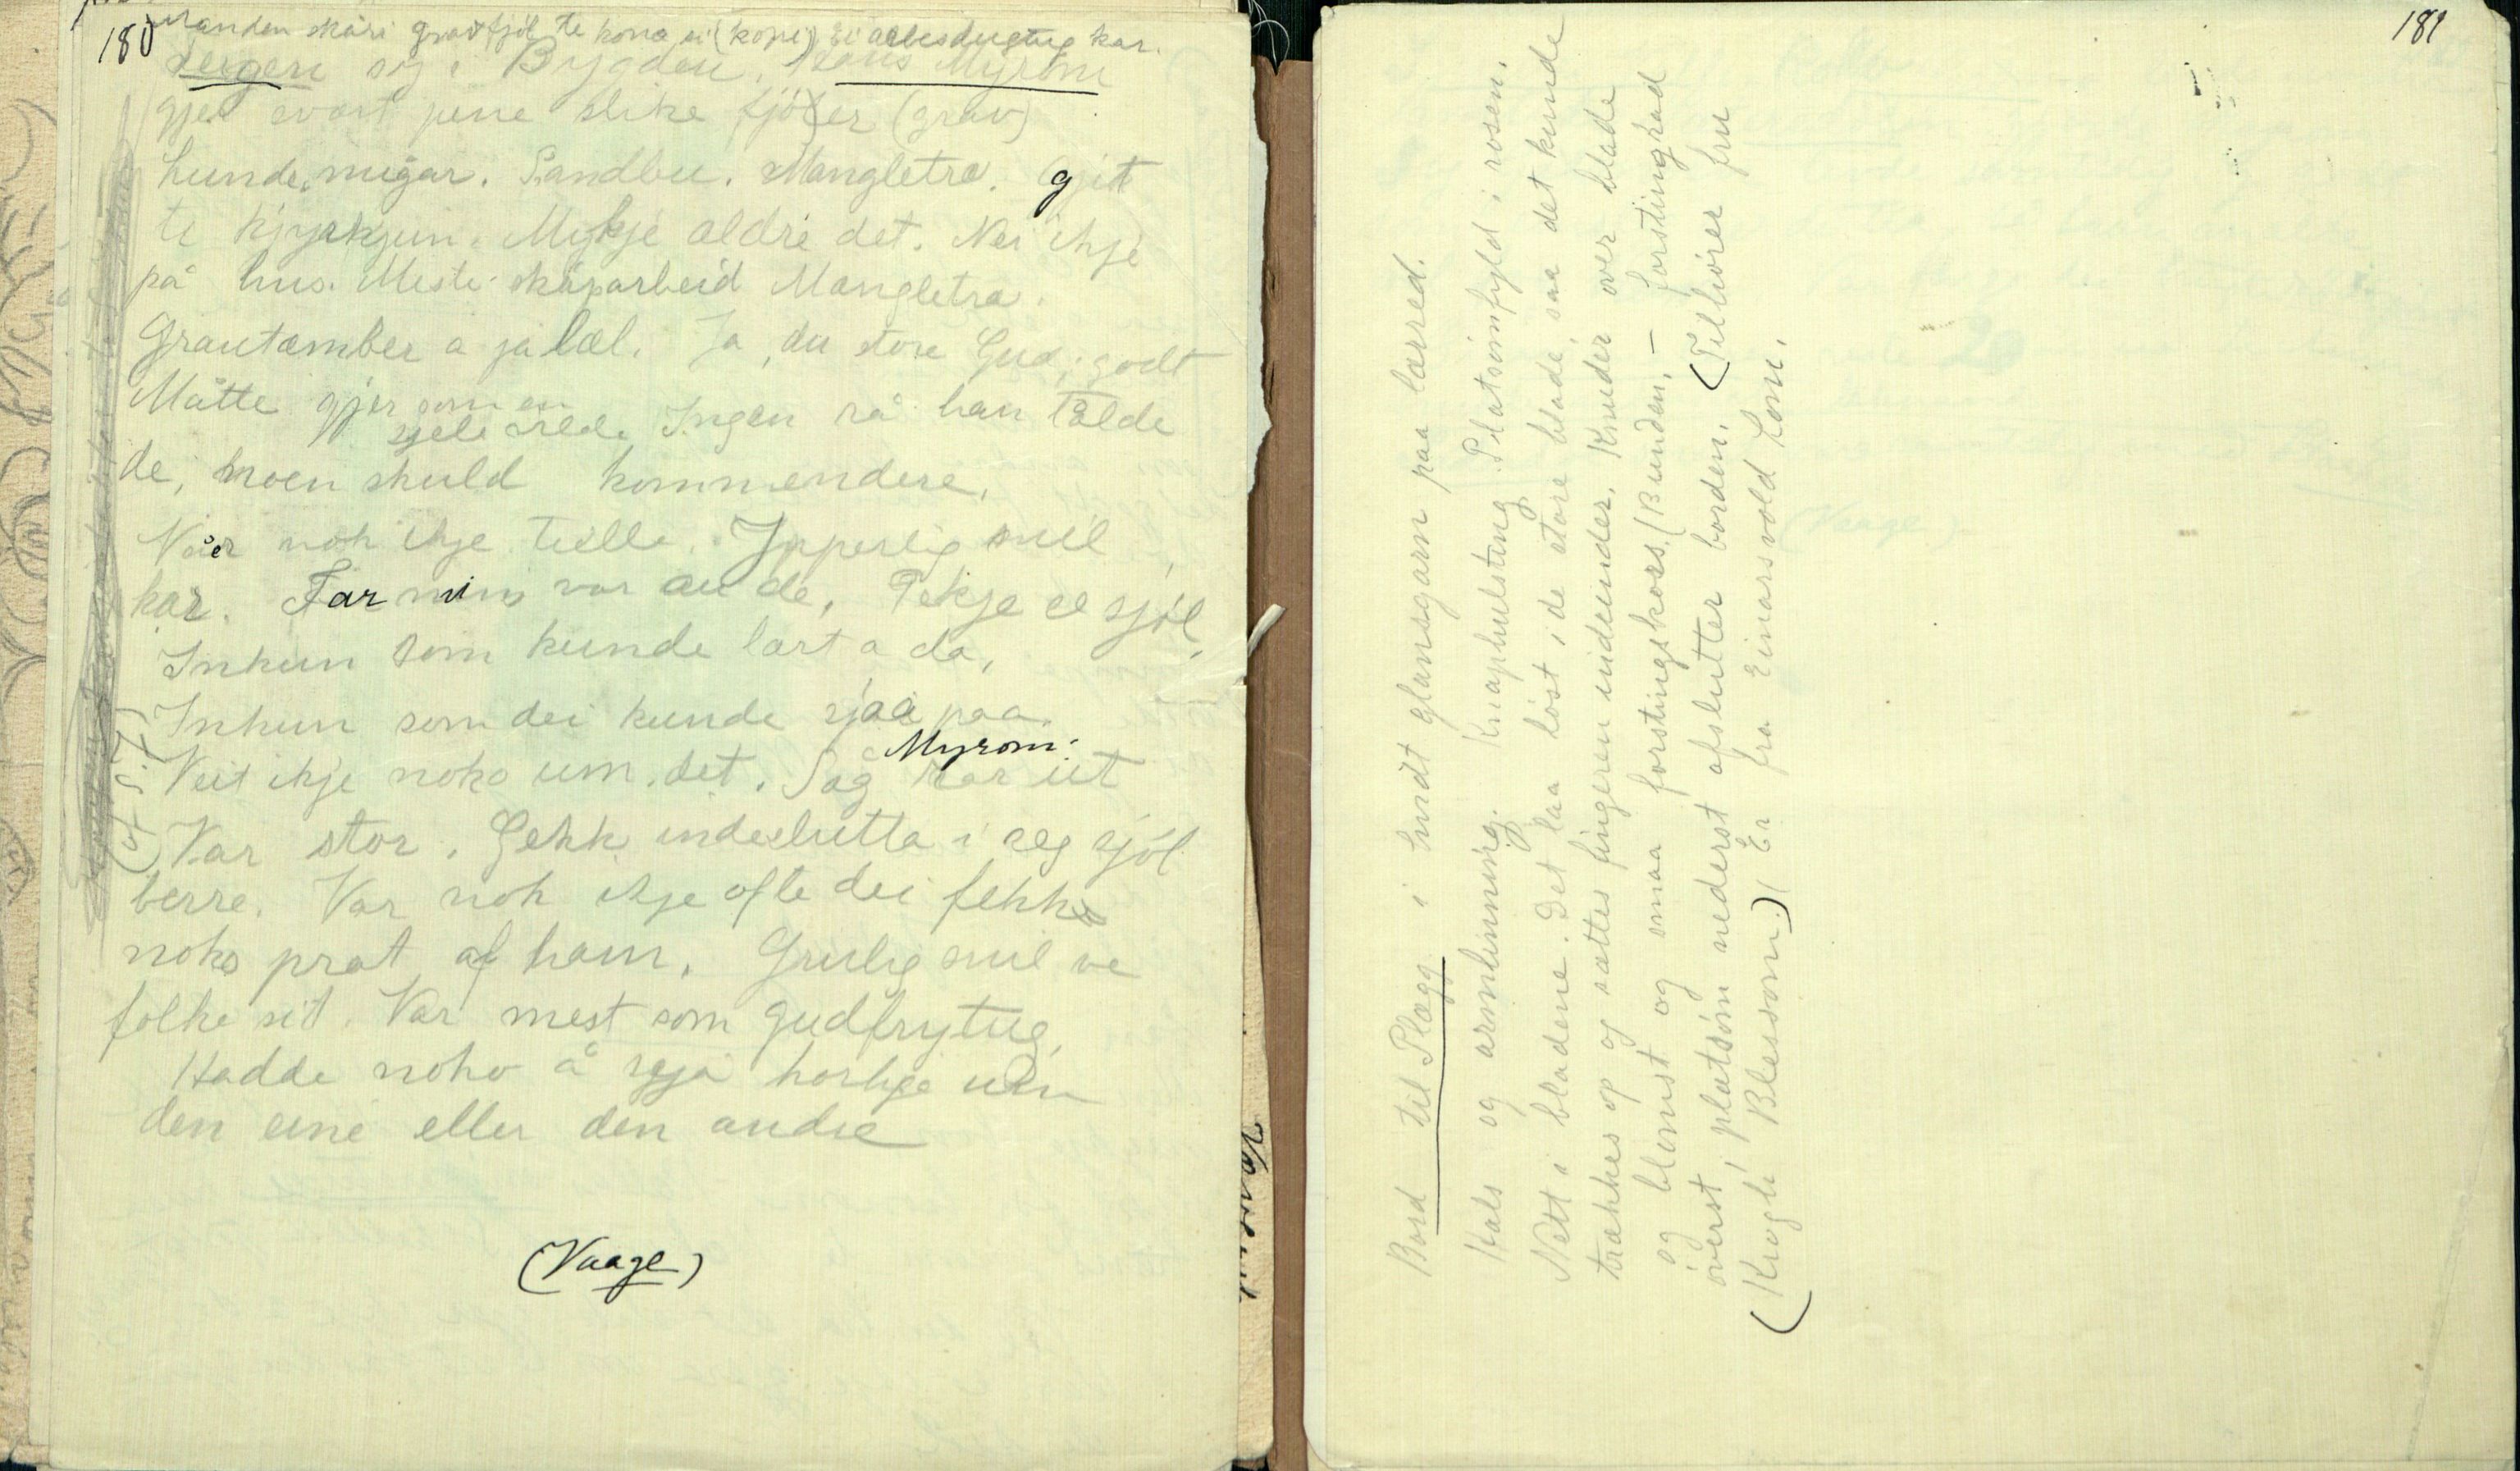 180
Manden skäri gravfjöl te kona si (kopi) Ei arbesdugtug kar.
seigen sig i Bygden, Hans Myrom
gjer svart pene slike fjöler (grav)
hundremigar. Sandbu. Mangletre. gjit
te kjyrkjun. Mykje aldre det. Nei ikje
på hus. Meste skåparbeid Mangletra.
Grautämber a ja läl. Ja, du store Gud, godt
Måtte gjer som en
sjele vilde Ingen rå han tålde
de, noen skuld kommendere,
Når noh ikje tulle. Ypperlig snil
kar. Far min var au de, Tekje el sjöl,
Inkun som kunde lart a da,
Inkun som dei kunde sjaa paa.
Veit ikje noko um det. Såg kar ut
Myrom:
Var stor. Gekk indeslutta i seg sjöl
berre. Var noh ikje ofte dei fekk
noko prat af ham, Grulig snil ve
folke sit. Var mest som gudfrytug,
Hadde noko å seja horlige um
den eine eller den andre
(Vaage)
181
Bord til Plægg i hvidt glansgarn paa lærred.
Hals og armlinning. Knaphulsting. Platsömfyld i rosen,
Nett i bladene. Det laa löst i de store blade, saa det kunde
trækkes op og sættes fingeren indeunder. Knuder over blade
og blomst og smaa forstingskors. (Bunden, – forstingrad
överst, platsöm nederst afslutter borden. (Tilhörer fru
(Krogh Blessom.) (Er fra Einarsvold Lom.